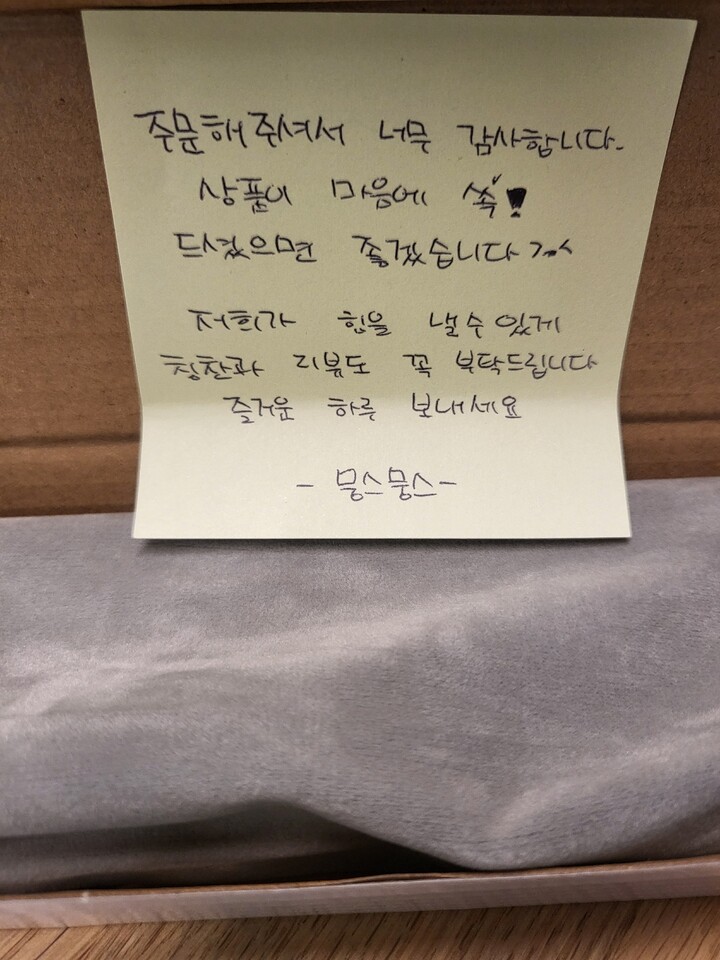 주문해주셔서 너무 감사합니다.
상품이 마음에 쏙!
드셨으면 좋겠습니다^^
저희가 힘을 낼수있게
칭찬과 리뷰도 꼭 부탁드립니다
즐거운 하루 보내세요
- 뭉스뭉스-